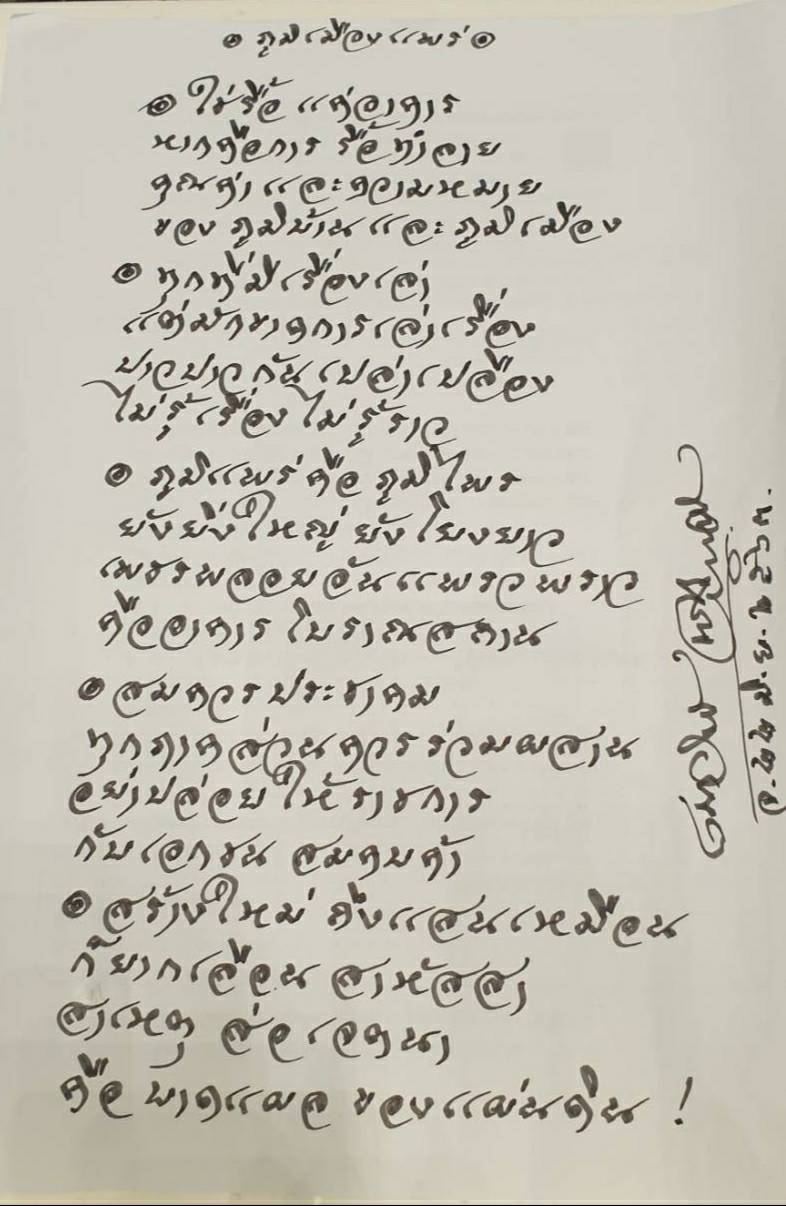 ๏ ภูมิเมืองแพร่ ๏
๏ ใช่รื้อ แค่อาคาร
หากคือการ รื้อทำลาย
คุณค่า และความหมาย
ของ ภูมิบ้าน และ ภูมิเมือง
๏ ทุกที่มีเรื่องเล่า
แต่มักขาดการเล่าเรื่อง
ปาวปาวกันเปล่าเปลือง
ไม่รู้เรื่อง ไม่รู้ราว
๏ ภูมิแพร่ คือ ภูมิไพร
ยังยิ่งใหญ่ ยังโยงยาว
เพชรพลอยอันแพรวพราว
คืออาคาร โบราณสถาน
๏ สมควรประชาคม
ทุกภาคส่วนควรร่วมผสาน
อย่าปล่อยให้ราชการ
กับเอกชน สมคบค้า
๏ สร้างใหม่ ถึงแสนเหมือน
ก็ยากเลือน สาหัสสา
สาเหตุ ส่อเจตนา
คือ บาดแผล ของแผ่นดิน !
เนาวรัตน์ พงษ์ไพบูลย์
จ. ๒๒ มิ.ย. ๒๕๖๓.